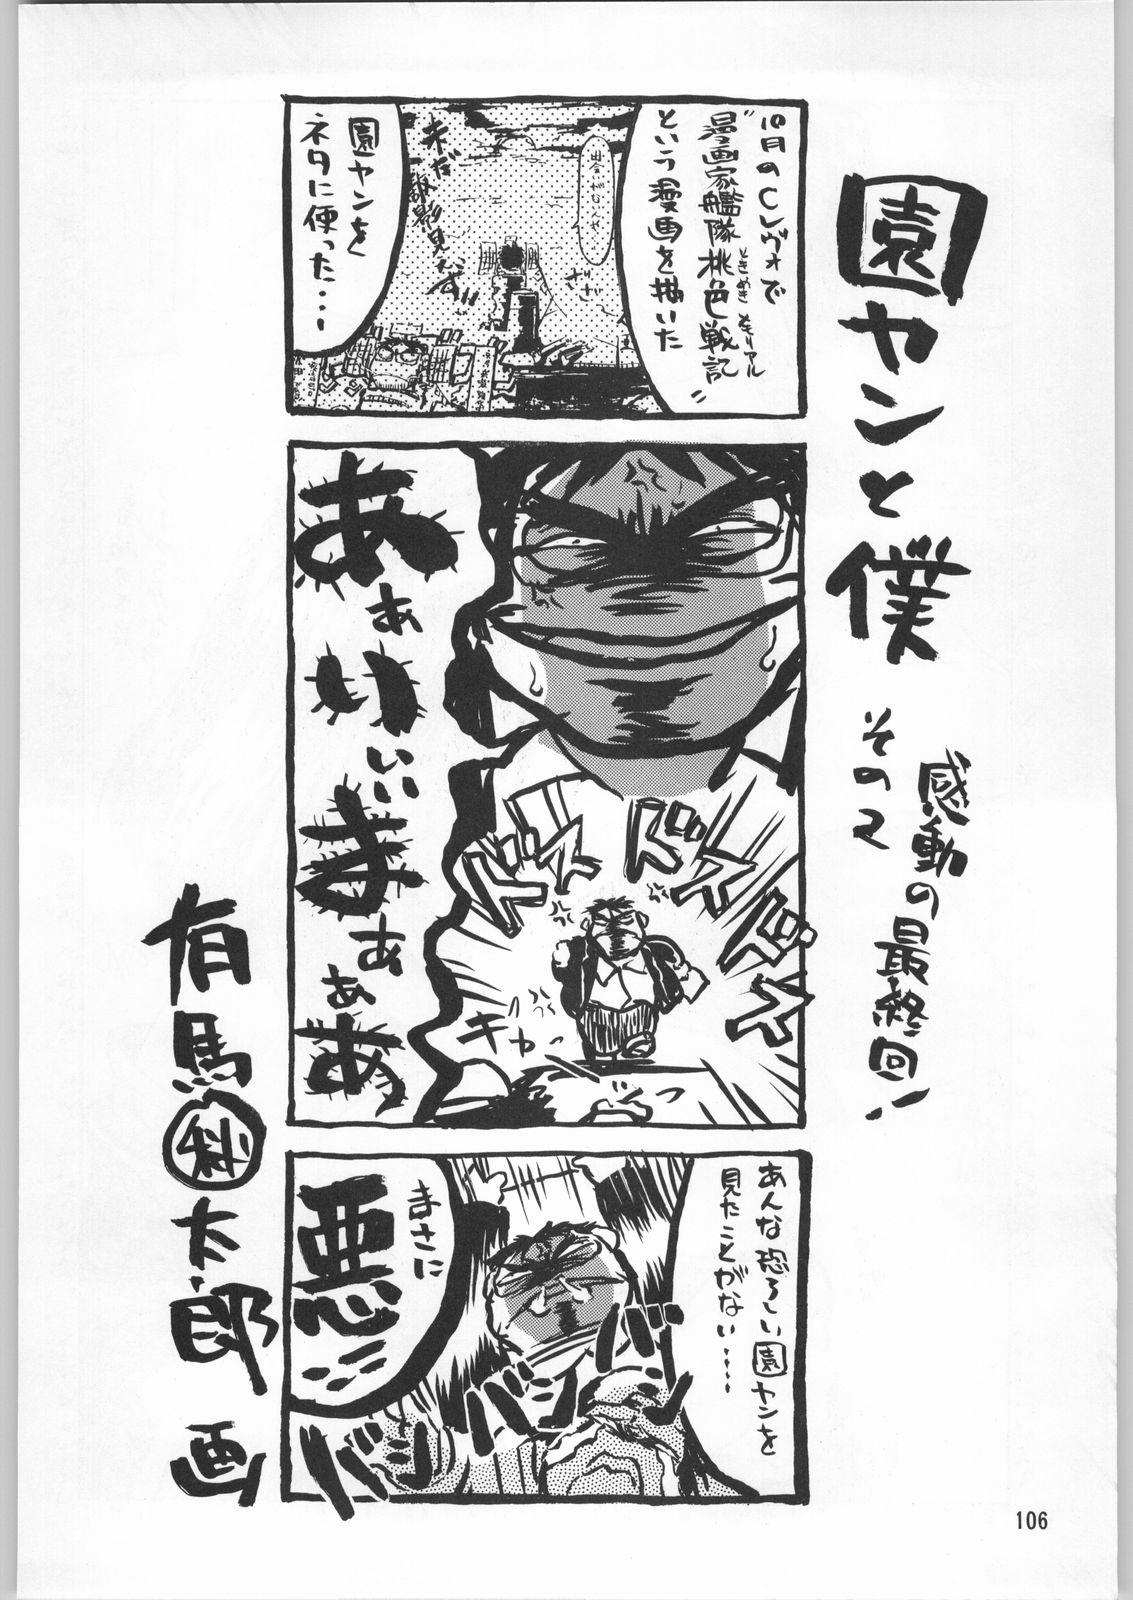 園ヤンと僕
その2
感動の最終回!
10月のCレヴォで
"漫画家艦隊桃色戦記"
ときめきメモリアル
という漫画を描いた
ざざ〜
園ヤンを
ネタに使った・・・
あぁいぃまぁあぁあ
ドスドスドスドスドス
キャっ
あんな恐ろしい園ヤンを
見たことがない・・・・・
まさに
悪
バン
バシ
バシ
有馬㊙太郎 画
106